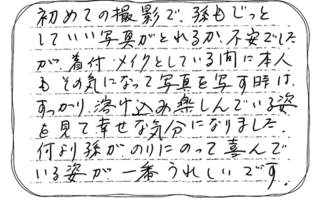 初めての撮影で、孫もじっと
していい写真がとれるか、不安でした
が、着付、メイクとしている間に本人
もその気になって写真を写す時は、
すっかり溶け込み楽しんでいる姿
を見て幸せな気分になりました。
何より孫が、のりにのって喜んで
いる姿が一番うれしいです。